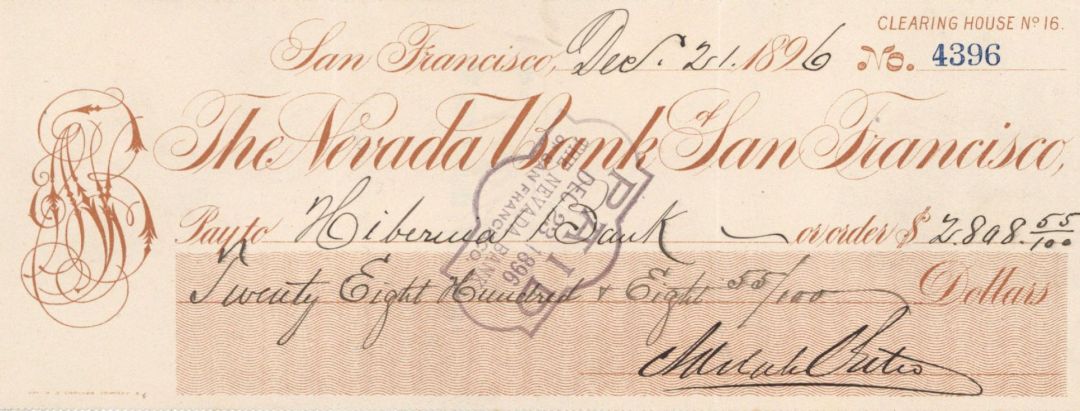 CLEARING HOUSE No 16.
San Francisco, Dec. 21. 1896 No. 4396
The Nevada Bank of San Francisco,
Pay to Hibernia Bank or order $ 2808.55/100
Twenty Eight Hundred & Eight 55/100 Dollars
PAID
DEC 23 1896
THE NEVADA BANK
SAN FRANCISCO